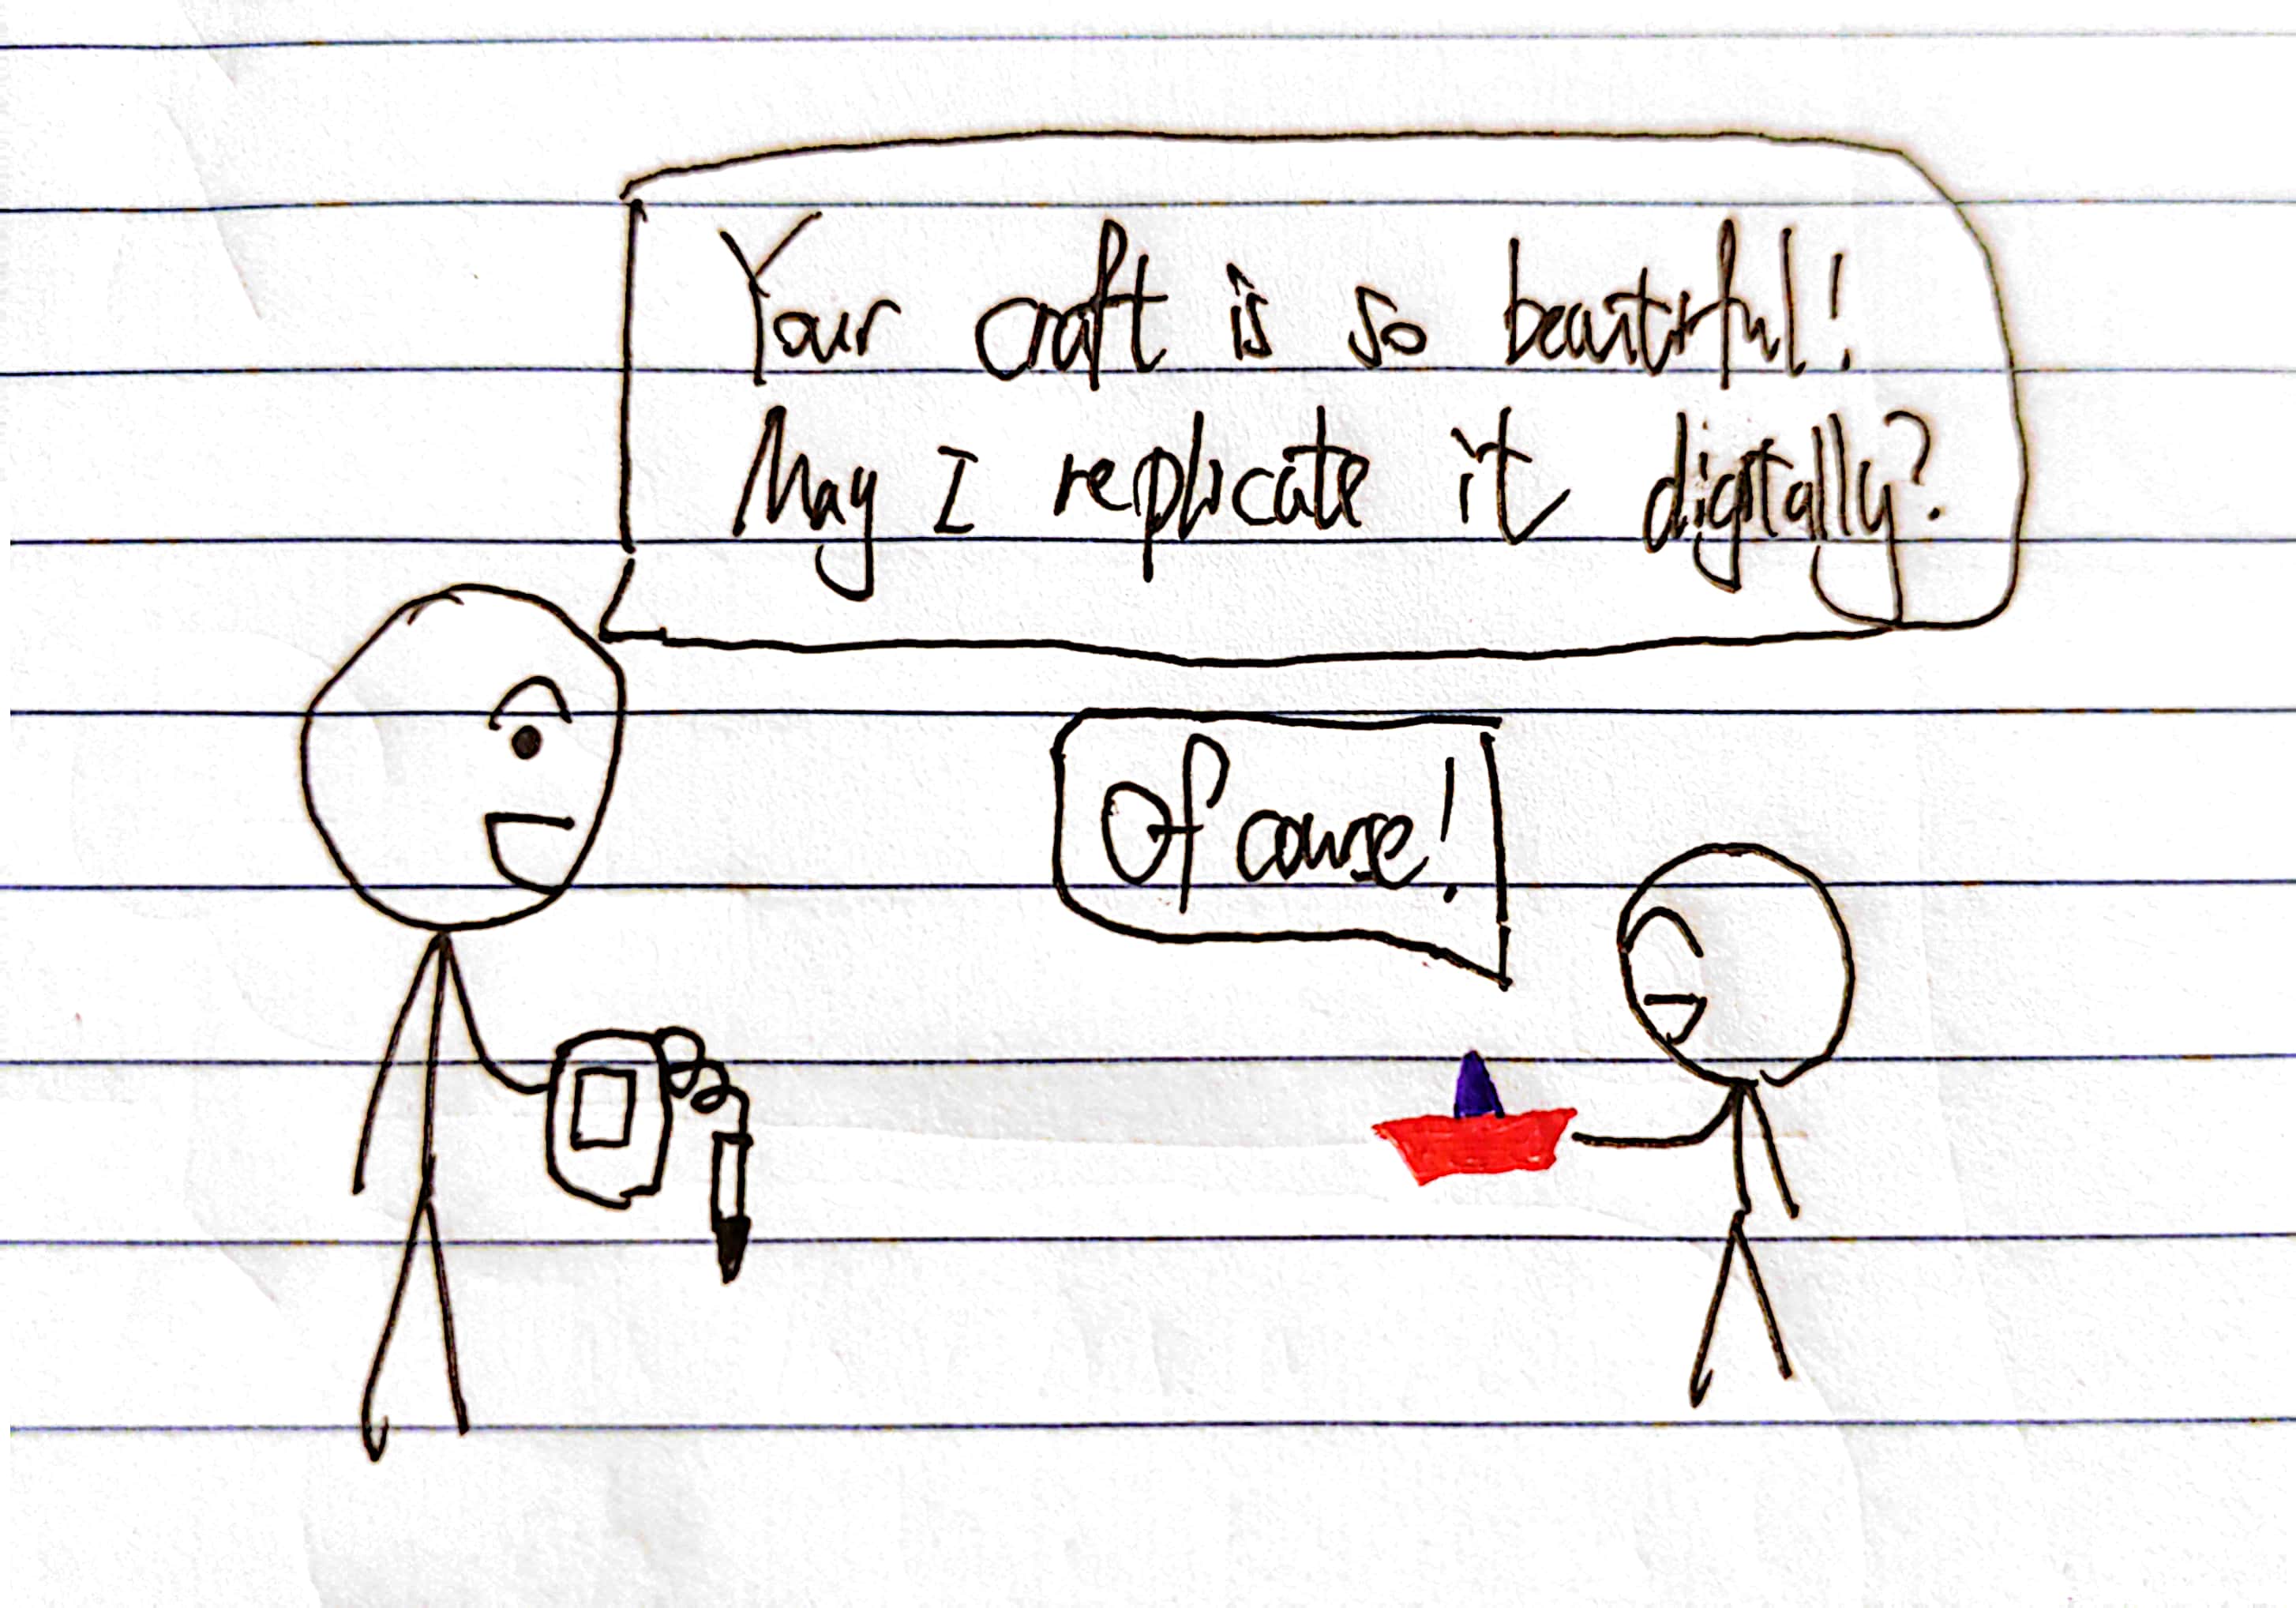 Your craft is so beautiful!
May I replicate it digitally?
Of course!